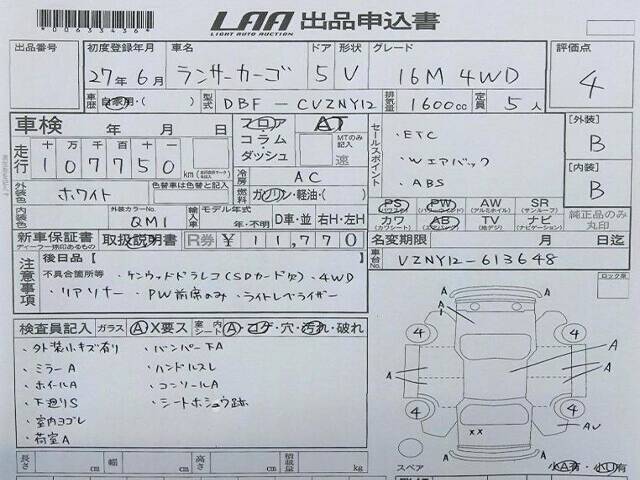 *006334364*
LAA 出品申込書
LIGHT AUTO AUCTION
出品番号 初度登録年月 車名 ドア 形状 グレード 評価点
27年 6月 ランサーカーゴ 5 V 16M 4WD 4
車歴 自家用・( ) 型式 DBF-CVZNY12 排気量 1600cc 定員 5人
車検 年 月 日 フロア AT ・ETC 外装 B
コラム MTのみ記入
ダッシュ 速 セールスポイント ・Wエアバック
走行 十万千百十 107750 km 冷房 AC ・ABS 内装 B
外装色 ホワイト 色替車は色替と記入 燃料 ガソリン・軽油・( )
PS PW AW SR
(パワステ) (パワーウインド) (アルミホイル) (サンルーフ)
カワ AB TV ナビ 純正品のみ丸印
(カワシート) (エアバック) (地デジ) (ナビ)
内装色 外装カラーNo. QM1 輸入車 モデル年式 年・不明 D車・並 右H・左H
新車保証書 取扱説明書 R券 ¥ 11,770 名変期限 月 日迄
ディーラー捺印あるもの
車台No. VZNY12-613648
注意事項 後日品 [ ] ロック票
不具合箇所等 ・ケンウッドドラレコ(SDカード欠) ・4WD
・リアソナー ・PW前席のみ ・ライトレベライザー
検査員記入 ガラス A X要ス 室内シート A・コゲ・穴・汚れ・破れ
・外装小キズ有り ・バンパー下A
・ミラーA ・ハンドルスレ
・ホイールA ・コンソールA
・下廻りS ・シートホシュウ跡
・室内ヨゴレ
・荷室A
A
4 4
A A A
4 4
xx AU
スペア 小A有・小U有
長さ cm 幅 cm 高さ cm 積載量 kg